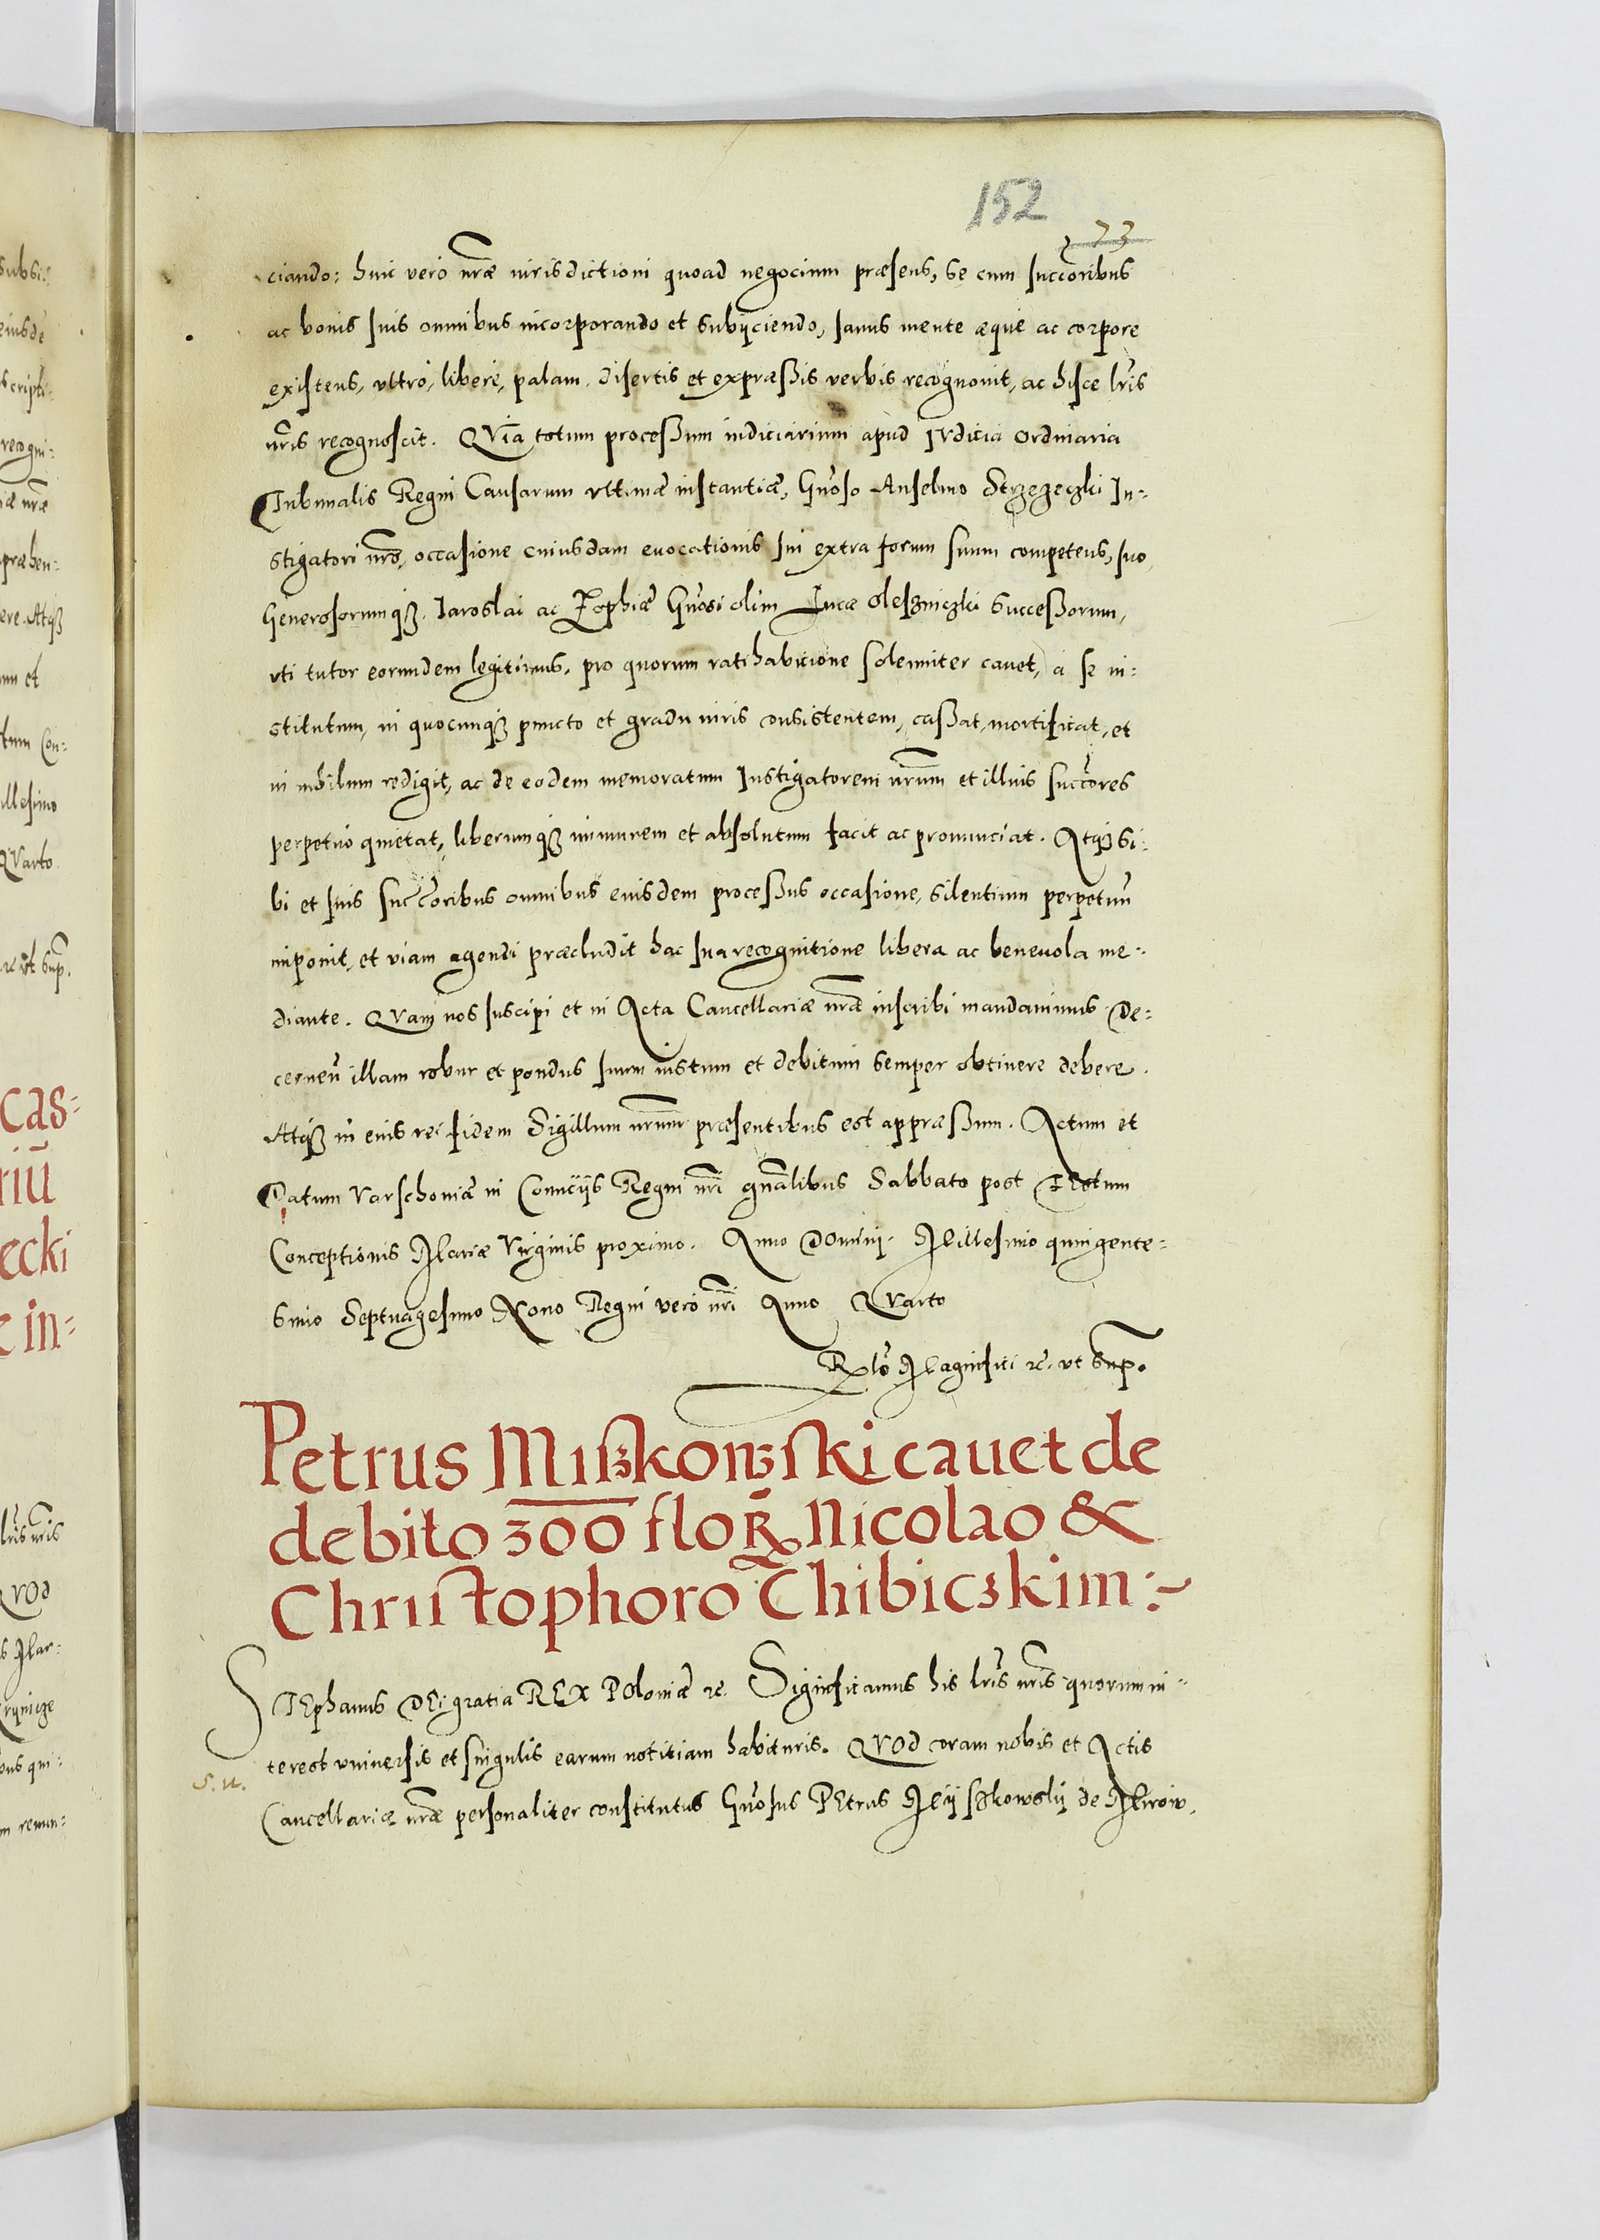 152
73
ciando: huic vero nr̃æ iurisdictioni quoad negocium præsens, se cum succ̃oribus
ac bonis suis omnibus incorporando et subijciendo, sanus mente æque ac corpore
existens, vltro, libere, palam, disertis et expræßis verbis recognouit, ac hisce lr̃is
nr̃is recognoscit. QVia totum proceßum iudiciarium apud IVdicia ordinaria
Tribunalis Regni Causarum vltimæ instantiæ, Gn̄oso Anselmo Strzezeczki In-
stigatori nr̃o, occasione cuiusdam euocationis sui extra forum suum competens, suo
Generosorumq̃ʒ Iaroslai ac Zophiæ Gn̄osi olim Lucæ Oleszniczki succeßorum,
vti tutor eorundem legitimus, pro quorum ratihabitione solenniter cauet, a se in-
stitutum, in quocunqʒ puncto et gradu iuris consistentem, caßat, mortificat, et
in nihilum redigit, ac de eodem memoratum Instigatorem nr̃um et illius succ̃ores
perpetuo quietat, liberumqʒ immunem et absolutum facit ac pronunciat. Atqʒ si-
bi et suis succ̃oribus omnibus eiusdem proceßus occasione, silentium perpetuũ
imponit, et viam agendi præcludit hac sua recognitione libera ac beneuola me-
diante. QVam nos suscipi et in Acta Cancellariæ nr̃æ inscribi mandauimus De-
cerneñ illam robur et pondus suum iustum et debitum semper obtinere debere.
Atqʒ in eius rei fidem Sigillum nr̃um præsentibus est appræßum. Actum et
Datum Varschouiæ in Comicijs Regni nr̃i gñalibus Sabbato post FEstum
Conceptionis Mariæ Virginis proximo. Anno DOmini. Millesimo quingente-
simo Septuagesimo Nono Regni vero nr̃i Anno QVarto
Rlõ Magnifici ꝛc. vt supʳ.
Petrus Mißkowski cauet de
debito 300 floꝝ Nicolao &
Christophoro Chibiczkim:~
STEphanus DEi gratia REX POloniæ ꝛc. Significamus his lr̃is nr̃is quorum in-
terest vniuersis et singulis earum notitiam habituris. QVOd coram nobis et Actis
S. u.
Cancellariæ nr̃æ personaliter constitutus Gn̄osus PEtrus Mijszkowskj de Mirow,